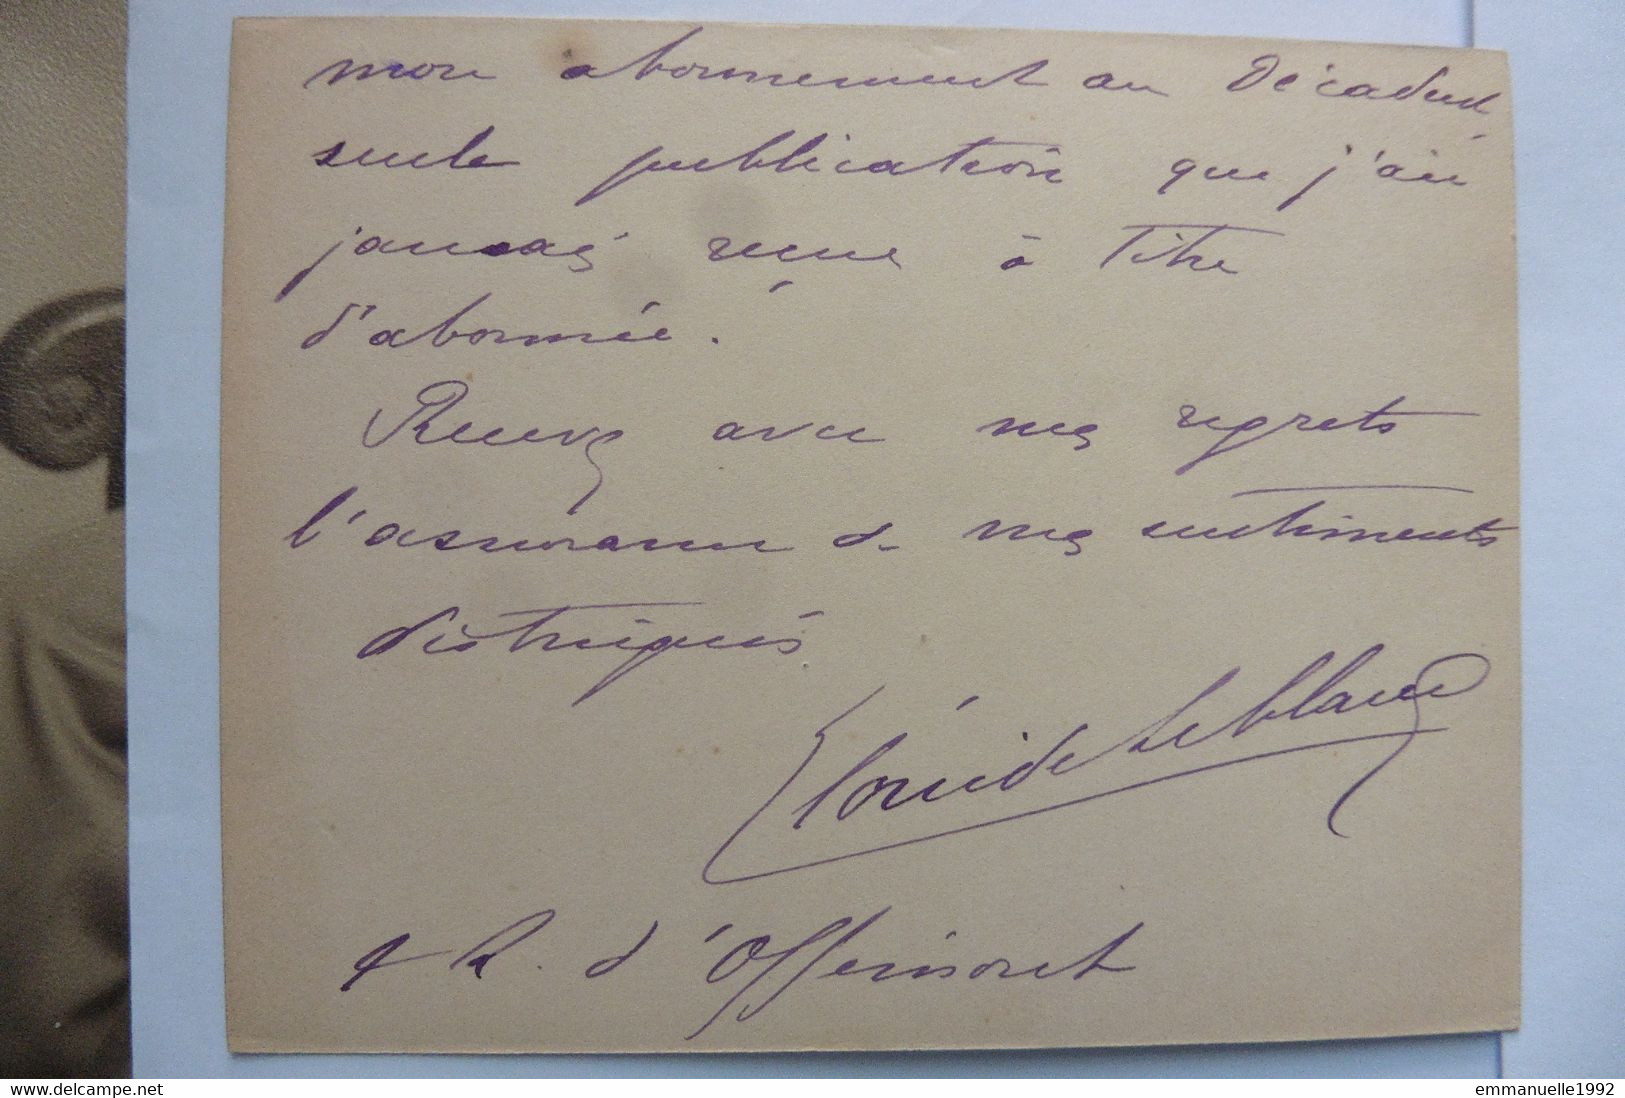 mon abonnement au Décadent
seule publication que j'aie
jamais reçue à titre
d'abonnée.
Recevez avec mes regrets
l'assurance de mes sentiments
distingués
Léonide Leblanc
4 R. d'Offémont
delcampe.net
emmanuelle1992